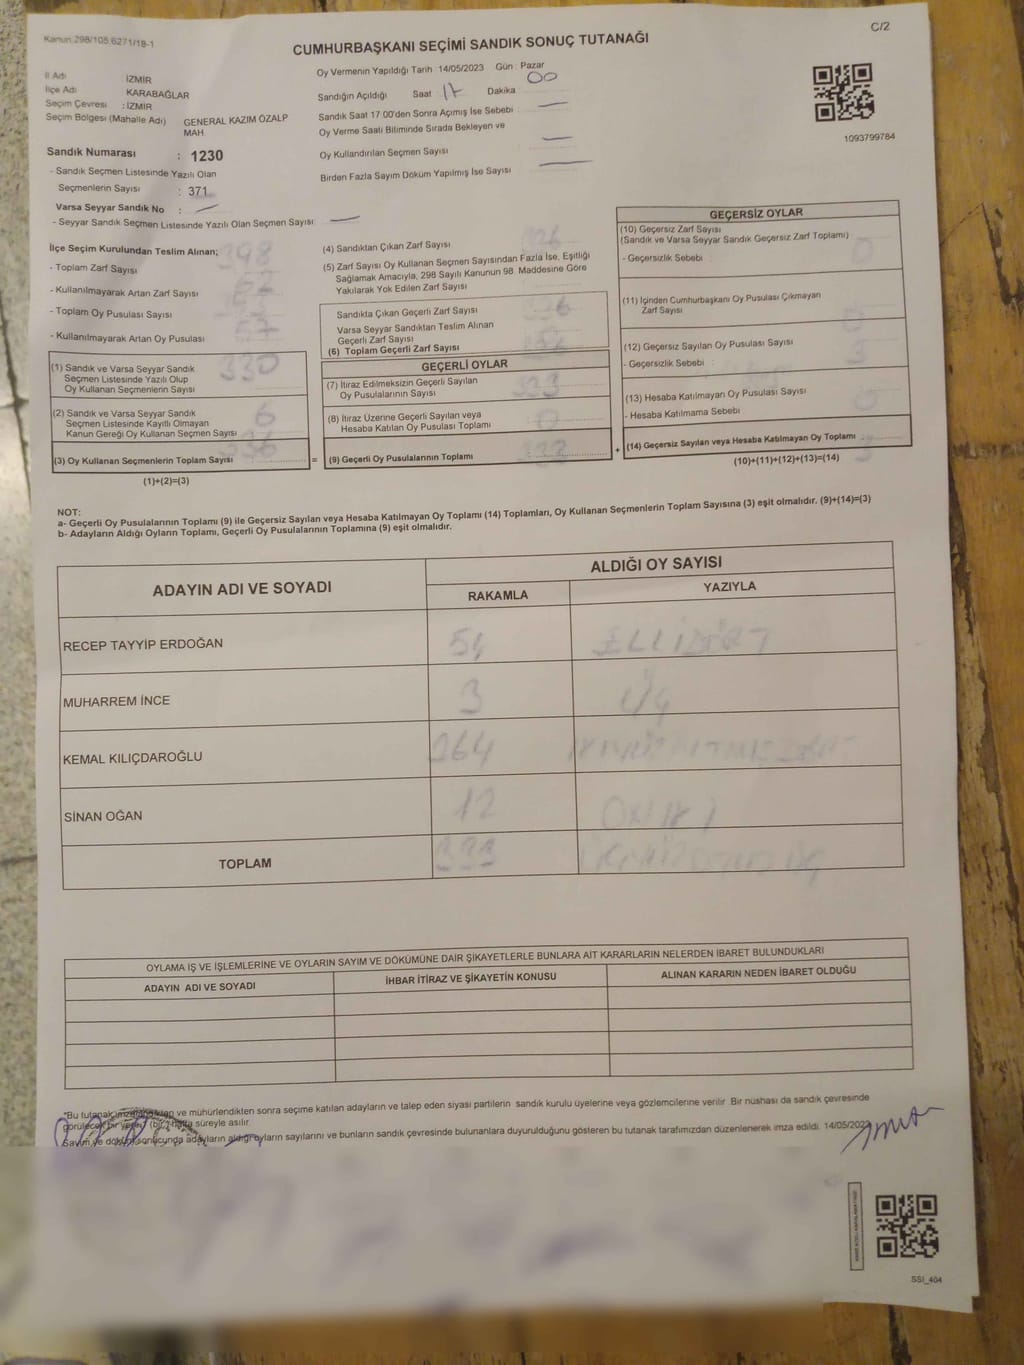 Kanun:298/105,6271/18-1
C/2
CUMHURBAŞKANI SEÇİMİ SANDIK SONUÇ TUTANAĞI
İl Adı İZMİR
İlçe Adı KARABAĞLAR
Seçim Çevresi : İZMİR
Seçim Bölgesi (Mahalle Adı) GENERAL KAZIM ÖZALP
MAH.
Sandık Numarası : 1230
- Sandık Seçmen Listesinde Yazılı Olan
Seçmenlerin Sayısı : 371
Varsa Seyyar Sandık No :
- Seyyar Sandık Seçmen Listesinde Yazılı Olan Seçmen Sayısı:
Oy Vermenin Yapıldığı Tarih :14/05/2023 Gün : Pazar
Sandığın Açıldığı Saat 17 Dakika 00
Sandık Saat 17.00'den Sonra Açımış İse Sebebi
Oy Verme Saati Bitiminde Sırada Bekleyen ve
Oy Kullandırılan Seçmen Sayısı
Birden Fazla Sayım Döküm Yapılmış İse Sayısı
1093799784
İlçe Seçim Kurulundan Teslim Alınan;
- Toplam Zarf Sayısı 398
- Kullanılmayarak Artan Zarf Sayısı
- Toplam Oy Pusulası Sayısı
- Kullanılmayarak Artan Oy Pusulası
(1) Sandık ve Varsa Seyyar Sandık 330
Seçmen Listesinde Yazılı Olup
Oy Kullanan Seçmenlerin Sayısı
(2) Sandık ve Varsa Seyyar Sandık 6
Seçmen Listesinde Kayıtlı Olmayan
Kanun Gereği Oy Kullanan Seçmen Sayısı
(3) Oy Kullanan Seçmenlerin Toplam Sayısı 336 =
(1)+(2)=(3)
(4) Sandıktan Çıkan Zarf Sayısı 336
(5) Zarf Sayısı Oy Kullanan Seçmen Sayısından Fazla İse, Eşitliği
Sağlamak Amacıyla, 298 Sayılı Kanunun 98. Maddesine Göre
Yakılarak Yok Edilen Zarf Sayısı
Sandıkta Çıkan Geçerli Zarf Sayısı 336
Varsa Seyyar Sandıktan Teslim Alınan
Geçerli Zarf Sayısı
(6) Toplam Geçerli Zarf Sayısı 336
GEÇERLİ OYLAR
(7) İtiraz Edilmeksizin Geçerli Sayılan
Oy Pusulalarının Sayısı 333
(8) İtiraz Üzerine Geçerli Sayılan veya
Hesaba Katılan Oy Pusulası Toplamı 0
(9) Geçerli Oy Pusulalarının Toplamı 333 +
GEÇERSİZ OYLAR
(10) Geçersiz Zarf Sayısı
(Sandık ve Varsa Seyyar Sandık Geçersiz Zarf Toplamı) 0
- Geçersizlik Sebebi :
(11) İçinden Cumhurbaşkanı Oy Pusulası Çıkmayan
Zarf Sayısı 0
(12) Geçersiz Sayılan Oy Pusulası Sayısı 3
- Geçersizlik Sebebi :
(13) Hesaba Katılmayan Oy Pusulası Sayısı 0
- Hesaba Katılmama Sebebi :
(14) Geçersiz Sayılan veya Hesaba Katılmayan Oy Toplamı 3
(10)+(11)+(12)+(13)=(14)
NOT:
a- Geçerli Oy Pusulalarının Toplamı (9) ile Geçersiz Sayılan veya Hesaba Katılmayan Oy Toplamı (14) Toplamları, Oy Kullanan Seçmenlerin Toplam Sayısına (3) eşit olmalıdır. (9)+(14)=(3)
b- Adayların Aldığı Oyların Toplamı, Geçerli Oy Pusulalarının Toplamına (9) eşit olmalıdır.
ADAYIN ADI VE SOYADI ALDIĞI OY SAYISI
RAKAMLA YAZIYLA
RECEP TAYYİP ERDOĞAN 54 ELLİDÖRT
MUHARREM İNCE 3 ÜÇ
KEMAL KILIÇDAROĞLU 264 İKİYÜZALTMIŞDÖRT
SİNAN OĞAN 12 ONİKİ
TOPLAM 333 ÜÇYÜZOTUZÜÇ
OYLAMA İŞ VE İŞLEMLERİNE VE OYLARIN SAYIM VE DÖKÜMÜNE DAİR ŞİKAYETLERLE BUNLARA AİT KARARLARIN NELERDEN İBARET BULUNDUKLARI
ADAYIN ADI VE SOYADI İHBAR İTİRAZ VE ŞİKAYETİN KONUSU ALINAN KARARIN NEDEN İBARET OLDUĞU
*Bu tutanak imzalandıktan ve mühürlendikten sonra seçime katılan adayların ve talep eden siyasi partilerin sandık kurulu üyelerine veya gözlemcilerine verilir. Bir nüshası da sandık çevresinde
görülecek bir yerde 1 (bir) hafta süreyle asılır.
Sayım ve döküm sonucunda adayların aldığı oyların sayılarını ve bunların sandık çevresinde bulunanlara duyurulduğunu gösteren bu tutanak tarafımızdan düzenlenerek imza edildi. 14/05/2023
SSI_404